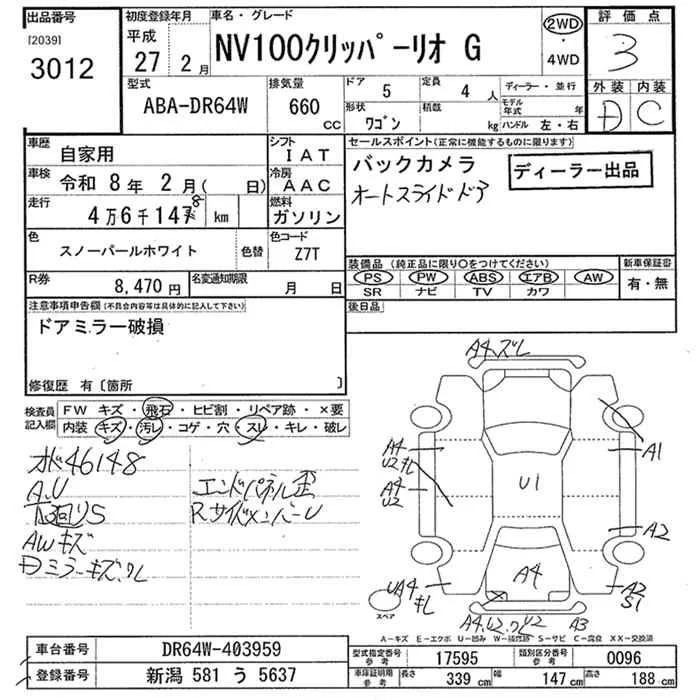 出品番号 初度登録年月 車名・グレード 評価点
[2039] 平成 NV100クリッパーリオ G 2WD・4WD 3
3012 27年 2月
型式 排気量 ドア 5 定員 4人 ディーラー・並行 外装 内装
ABA-DR64W 660 CC 形状 ワゴン 積載 kg モデル年式 年 ハンドル 左・右 D C
車歴 自家用 シフト IAT セールスポイント(正常に機能するものに限ります)
車検 令和 8年 2月( 日) 冷房 AAC バックカメラ ディーラー出品
オートスライドドア
走行 4万6千147 8 km 燃料 ガソリン
色 スノーパールホワイト 色替 色コード Z7T
装備品(純正品に限り○をつけてください) 新車保証書
PS PW ABS エアB AW 有・無
SR ナビ TV カワ
R券 8,470円 名変通知期限 月 日
後日品
注意事項申告欄(不具合内容等は具体的に記入して下さい)
ドアミラー破損
修復歴 有〔箇所 〕
検査員記入欄 FW キズ・飛石・ヒビ割・リペア跡・×要
内装 キズ・汚レ・コゲ・穴・スレ・キレ・破レ
46148
A.U エンドパネル歪
下回りS RサイドメンバーU
AWキズ
Dミラーキズ.ワレ
A4.ズレ
A4
U2キレ
A4
U2
A1
U1
A2
A4
UA4
キレ
A2
S1
A4.U2.ワレU2 A3
スペア
A-キズ E-エクボ U-凹み W-補修跡 S-サビ C-腐食 XX-交換済
車台番号 DR64W-403959 型式指定番号 参考 17595 類別区分番号 参考 0096
登録番号 新潟 581 う 5637 車庫証明用 参考 長さ 339 cm 幅 147 cm 高さ 188 cm